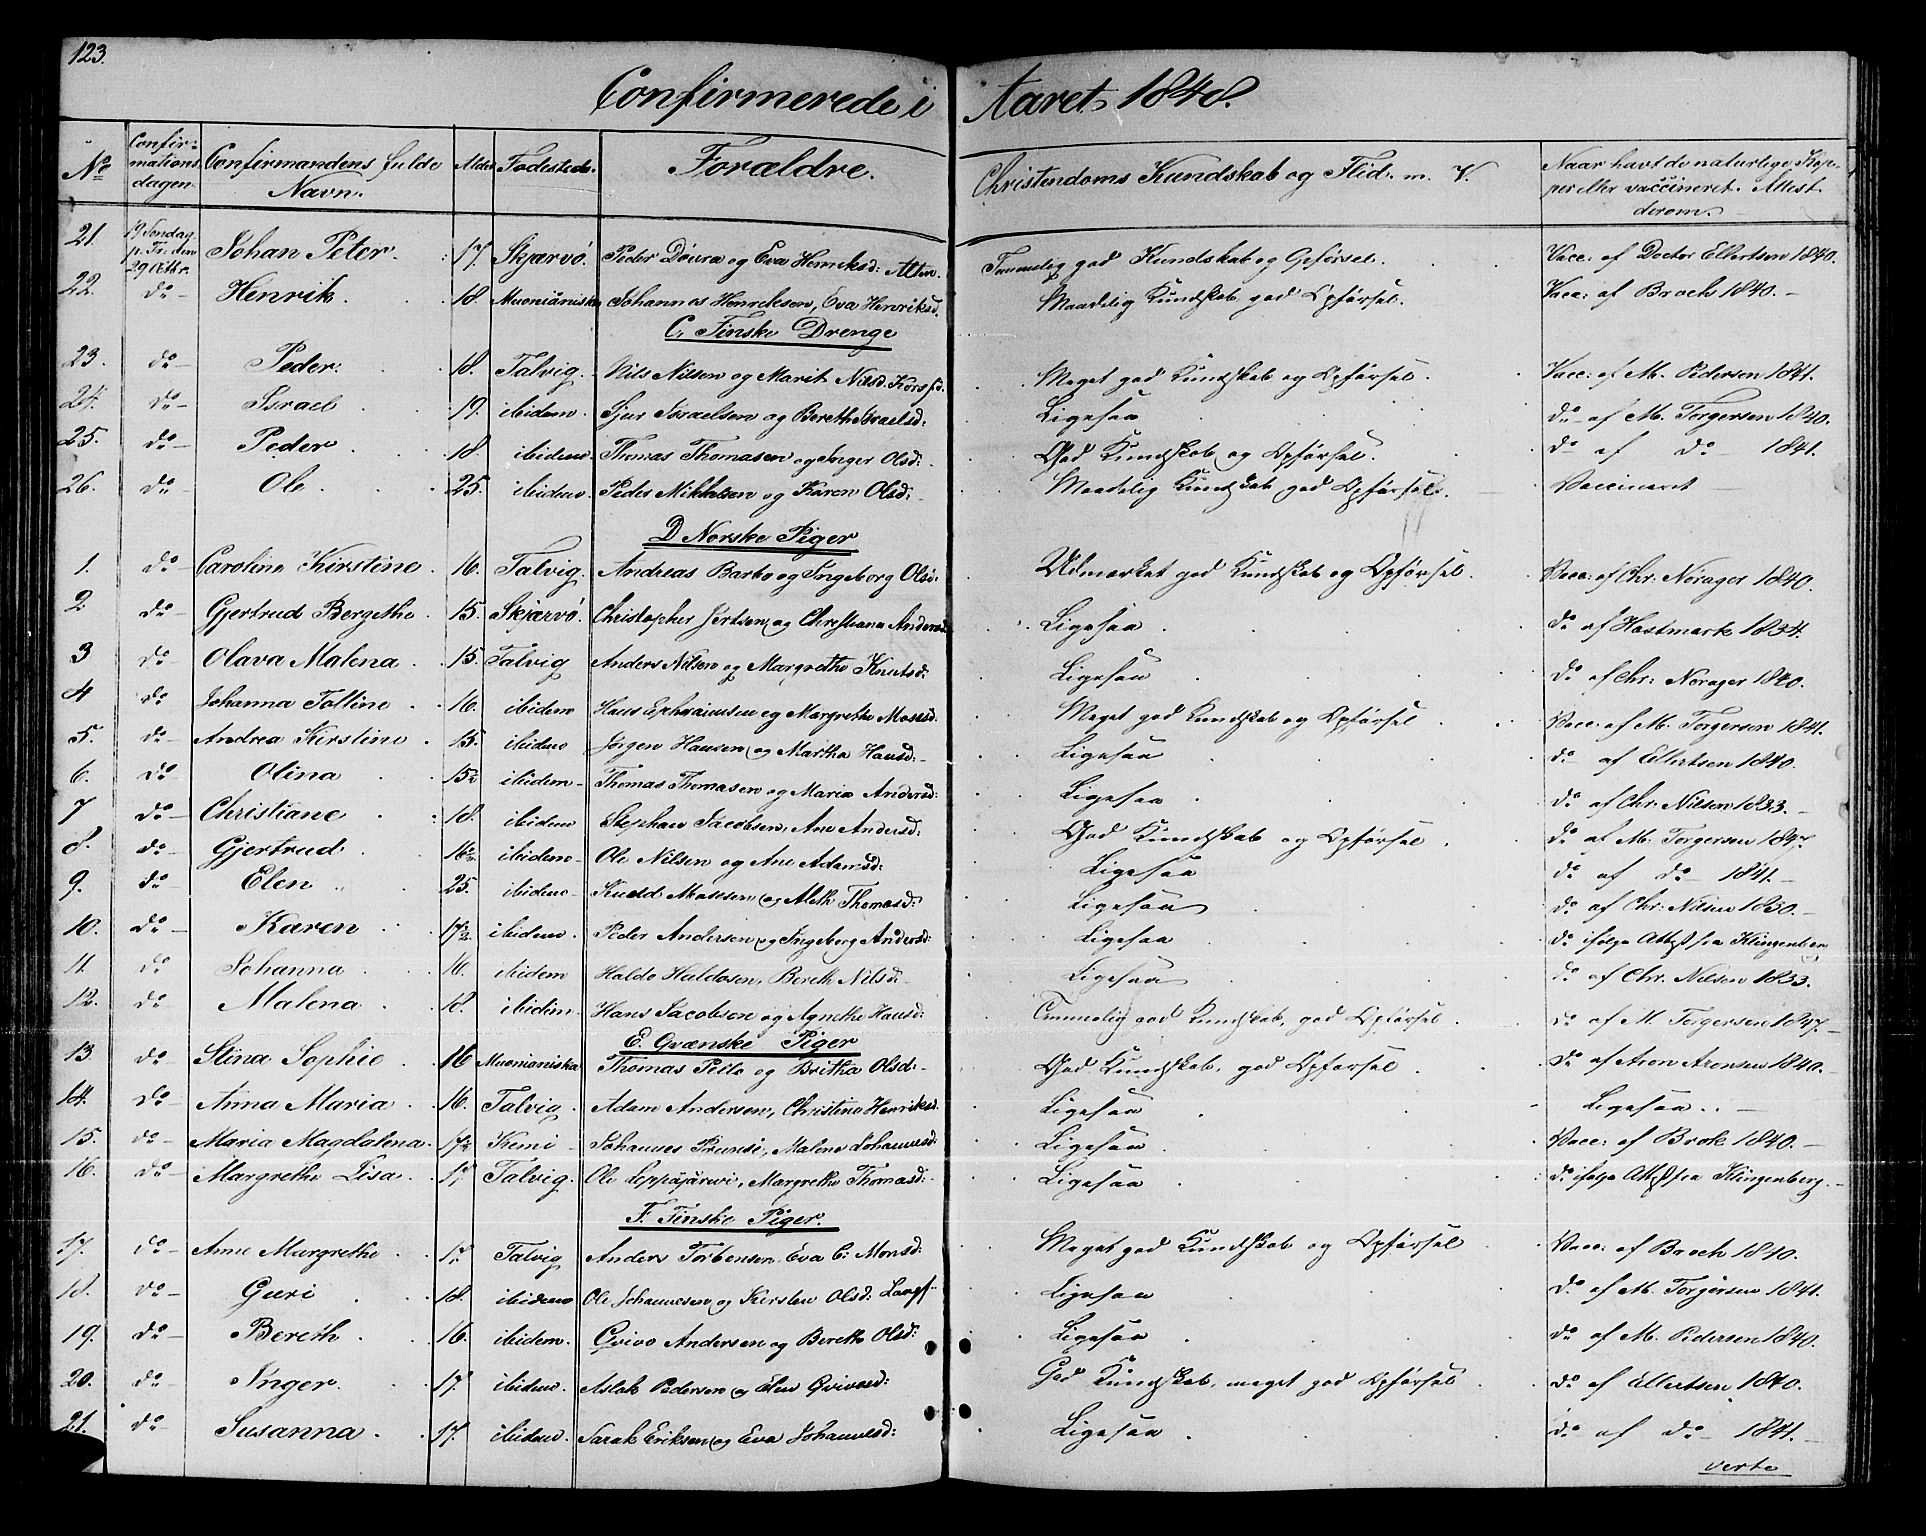 123.
Confirmerede i Aaret 1848.
No Confirmationsdagen. Confirmandens fulde Navn. Alder Fødested. Forældre. Christendoms Kundskab og Flid. m. V. Naar havt de naturlige Kopper eller vaccineret. Attest derom.
21. 19 Søndag p. Tr: den 29 Johan Peter. 17. Skjærvö. Peder Döura og Eva Henriksd: Alten. Temmelig god Kundskab og Opförsel. Vacc: af Doctor Ellertsen 1840.
22. do Henrik. 18. Muoniåniska Johannes Henriksen, Eva Henriksd. Maadelig Kundskab god Opförsel. Vacc: af Broch 1840.
C, Finske Drenge
23. do Peder. 18. Talvig. Nils Nilsen og Marit Nilsd. Korsfd. Meget god Kundskab og Opförsel. Vacc: af M. Pedersen 1841.
24. do Israel 19. ibidem Sjur Israelsen og Bereth Israelsd: Ligesaa do af M. Torgersen 1840.
25. do Peder 18. ibidem Thomas Thomasen og Inger Olsd: God Kundskab og Opförsel. do af do 1841.
26. do Ole 25. ibidem Peder Mikkelsen og Karen Olsd: Maadelig Kundskab god Opförsel. Vaccineret
D Norske Piger
1. do Caroline Kirstine 16. Talvig. Andreas Barbo og Ingeborg Olsd: Udmærket god Kundskab og Opförsel. Vacc: af Chr: Norager 1840.
2 do Gjertrud Bergethe 15. Skjærvö. Christopher Jertsen og Christiana Andersd Ligesaa do af Hastmark 1834.
3 do Olava Malena 15. Talvig Anders Nilsen og Margrethe Knutsd: Ligesaa do af Chr: Norager 1840.
4 do Johanna Tolline 16. ibidem Hans Ephraimsen og Margrethe Mosesd: Meget god Kundskab og Opförsel Vacc: af M. Torgersen 1841.
5. do Andrea Kirstine 15. ibidem Jörgen Hansen og Martha Hansd: Ligesaa do af Ellertsen 1840.
6. do Olina 15½ ibidem Thomas Thomasen og Maria Andersd: Ligesaa do af Chr. Nilsen 1833.
7 do Christiane 18. ibidem Stephan Jacobsen, Ane Andersd: God Kundskab og Opförsel do af M. Torgersen 1837.
8. do Gjertrud 16½ ibidem Ole Nilsen og Ane Adamsd: Ligesaa do af do 1841.
9. do Elen 25. ibidem Knud Matsen og Aleth Thomasd: Ligesaa do af Chr: Nilsen 1830.
10. do Karen 17½ ibidem. Peder Andersen og Ingeberg Andersd: Ligesaa do ifølge Attest fra Klingenberg
11. do Johanna 16. ibidem Haldo Haldosen, Bereth Nilsd. Ligesaa do af Chr. Nilsen 1833.
12. do Malena 18. ibidem Hans Jacobsen og Agnethe Hansd: Temmelig god Kundskab, god Opförsel do af M. Torgersen 1837.
E. Qvænske Piger
13. do Stina Sophie 16 Muonianiska Thomas Pello og Britha Olsd: God Kundskab, god Opförsel do af Aron Aronsen 1840.
14. do Anna Maria 16. Talvig Adam Andersen, Christine Henriksd. Ligesaa Ligesaa
15. do Maria Magdalena 17½ Kemi Johannes Prunsi, Malene Johannesd: Ligesaa Vacc: af Brok 1840.
16. do Margrethe Lisa 17 Talvig. Ole Leppäjärwi, Margrethe Thomasd: Ligesaa do ifølge Attest fra Klingenberg.
F. Finske Piger.
17. do Anne Margrethe 17. Talvig Anders Torbensen Eva C: Monsd: Meget god Kundskab og Opförsel Vacc: af Broch 1840.
18. do Guri 18. ibidem Ole Johannesen og Kirsten Olsd: Langf. Ligesaa do af M. Torgersen 1841.
19. do Bereth 16. ibidem. Qvivo Andersen og Bereth Olsd: Ligesaa do af M. Pedersen 1840.
20. do Inger. 17. ibidem. Aslak Pedersen og Elen Qvivosd: God Kundskab, meget god Opförsel do af Ellertsen 1840.
21. do Susanna 17. ibidem Sarak Eriksen og Eva Johannesd: Ligesaa do af do 1841.
verte